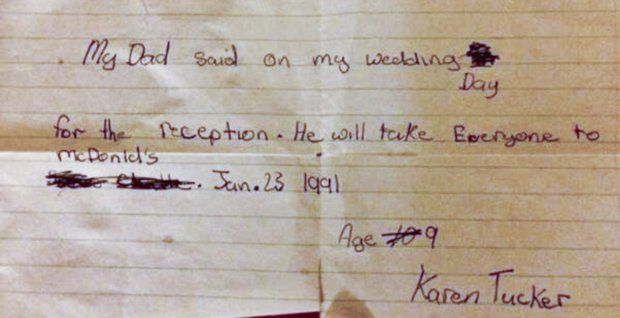 My Dad said on my wedding
Day
for the reception. He will take Everyone to
mcDonld's
Jan. 23 1991
Age 9
Karen Tucker